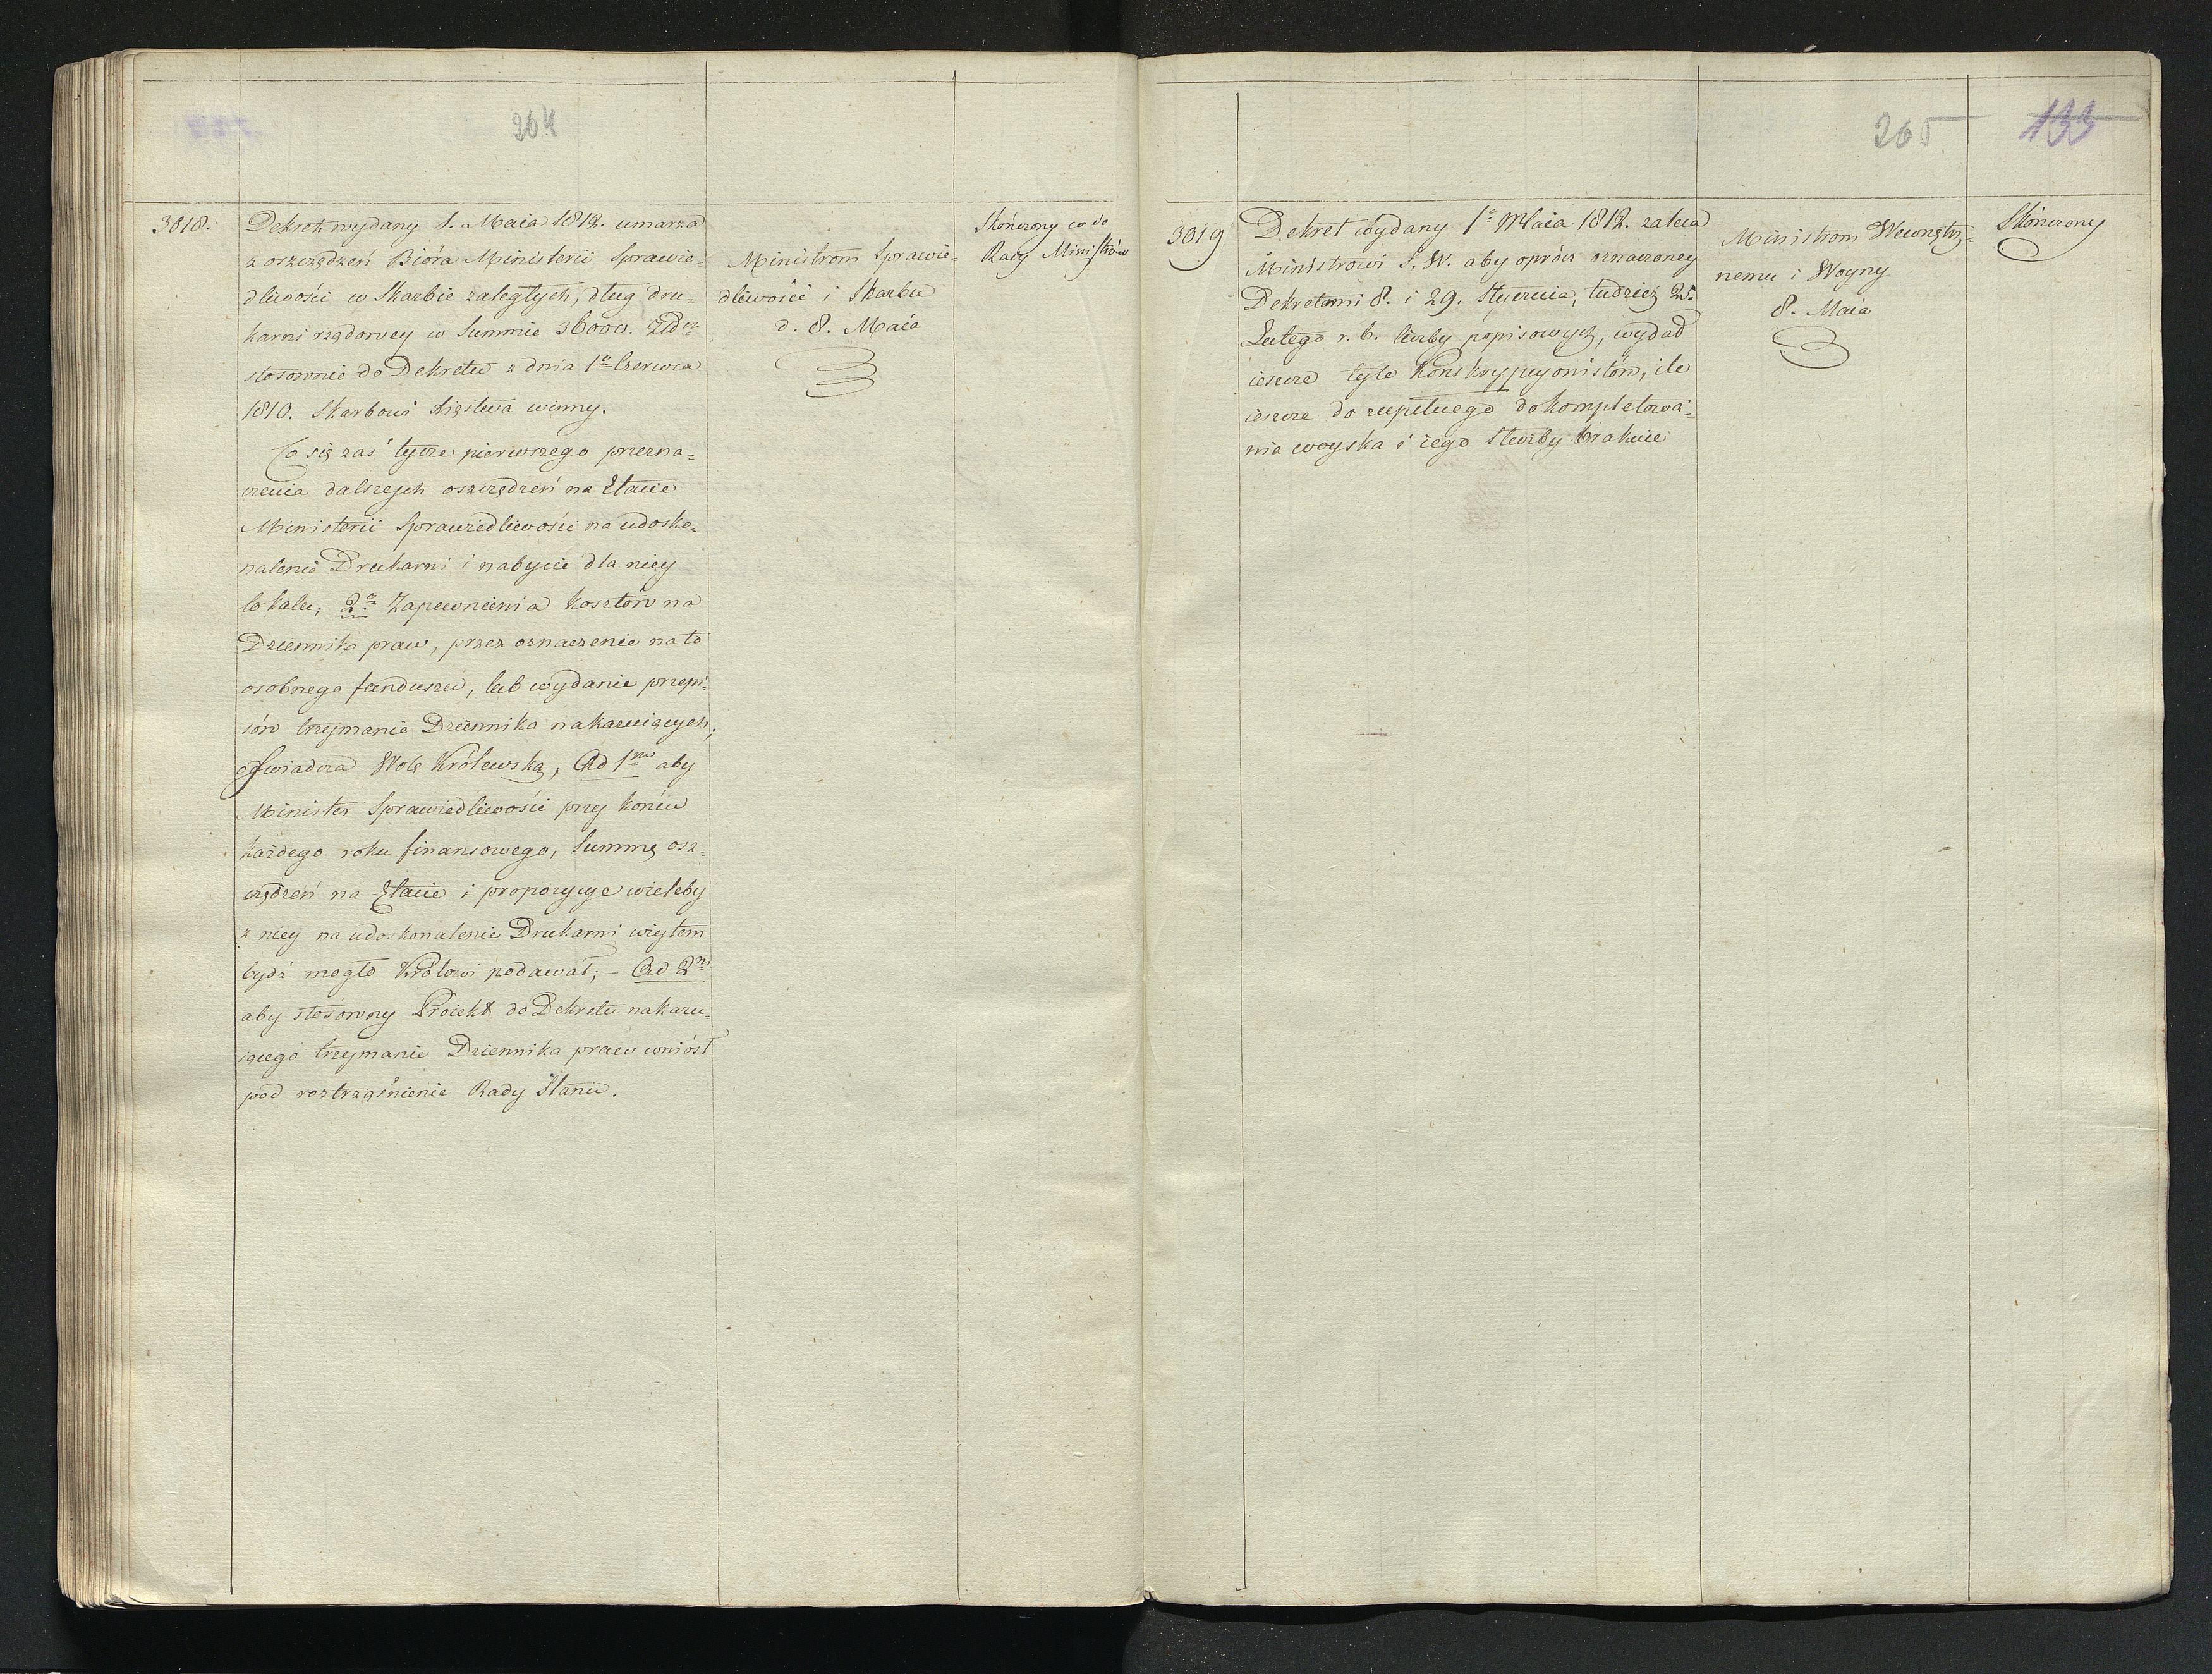 264
3018.
Dekret wydany 1. Maia 1812. umarza
z oszczędzeń Bióra Ministerii Sprawie-
dliwości w Skarbie zaległych, dług dru-
karni rządowey w Summie 36000. Złł
stosownie do Dekretu z dnia 1go Czerwca
1810. Skarbowi Xięstwa winny.
Co się zaś tycze pierwszego przezna-
czenia dalszych oszczędzeń na Etacie
Ministerii Sprawiedliwości na udosko-
nalenie Drukarni i nabycie dla niey
lokalu; 2o Zapewnienia kosztów na
Dziennik praw, przez oznaczenie na to
osobnego funduszu, lub wydanie przepi-
sów trzymanie Dziennika nakazuiących;
oświadcza Wolę Królewską, Ad 1m aby
Minister Sprawiedliwości przy końcu
każdego roku finansowego, Summę osz-
czędzeń na Etacie i propozycye wieleby
z niey na udoskonalenie Drukarni wziętem
bydź mogło Królowi podawał; – Ad 2m
aby stosowny Proiekt do Dekretu nakazu-
iącego trzymanie Dziennika praw wniósł
pod roztrząśnienie Rady Stanu.
Ministrom Sprawie-
dliwości i Skarbu
d. 8. Maia
Skończony co do
Rady Ministrów
265
133
3019
Dekret wydany 1o Maia 1812. zaleca
Ministrowi S. W. aby oprócz oznaczoney
Dekretami 8. i 29. Stycznia, tudzież 25.
Lutego r. b. liczby popisowych, wydał
ieszcze tyle konskrypcyonistów, ile
ieszcze do zupełnego dokompletowa-
nia woyska i iego służby brakuie
Ministrom Wewnętrz-
nemu i Woyny
8. Maia
Skończony